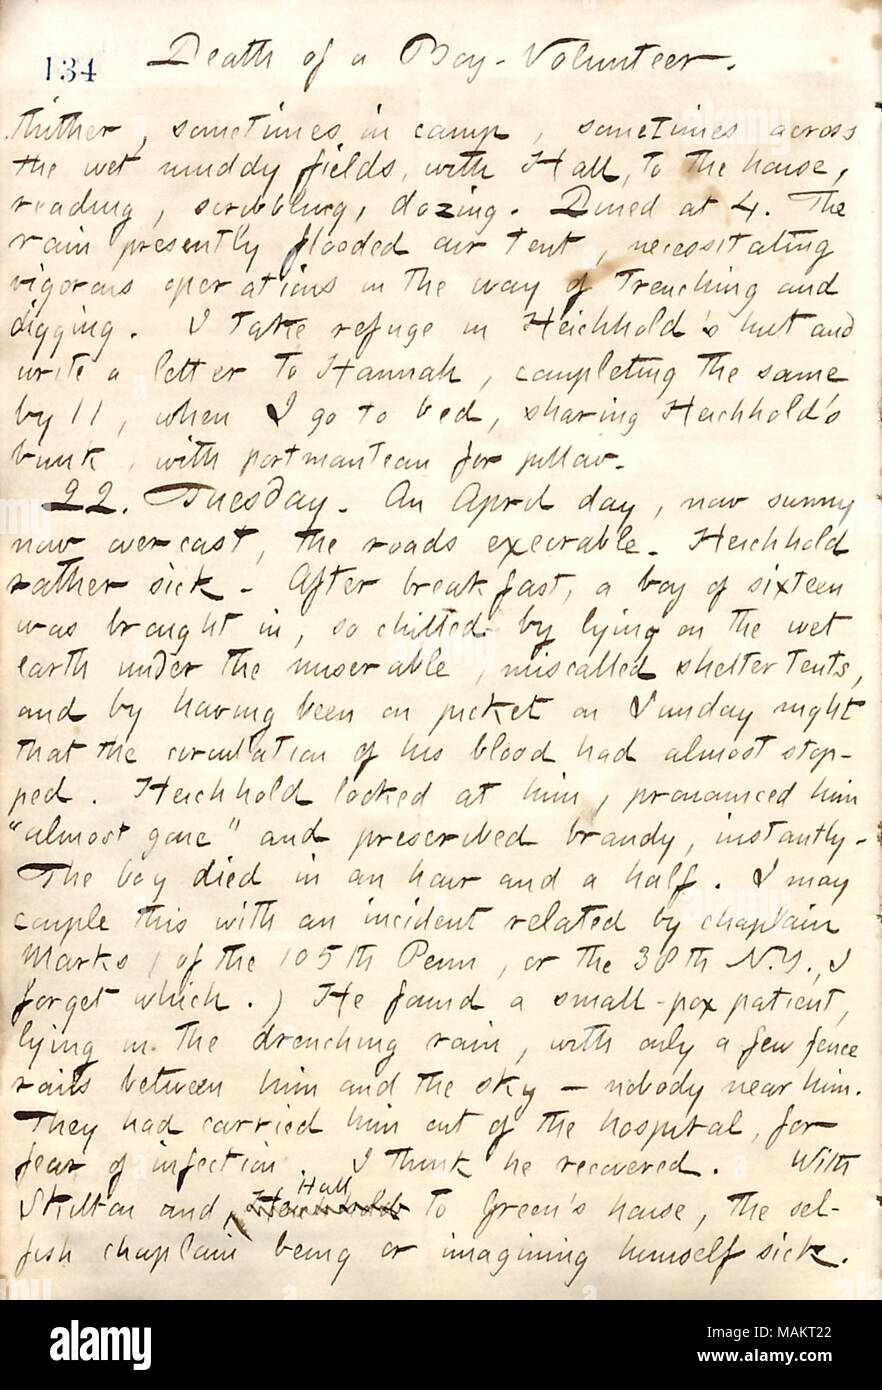 134
Death of a Boy-Volunteer.
thither, sometimes in camp, sometimes across
the wet muddy fields, with Hall, to the house,
reading, scribbling, dozing. Dined at 4. The
rain presently flooded our tent, necessitating
vigorous operations in the way of trenching and
digging. I take refuge in Heichhold's hut and
write a letter to Hannah, completing the same
by 11, when I go to bed, sharing Heichhold's
bunk, with portmanteau for pillow.
22. Tuesday. An April day, now sunny
now overcast, the roads execrable. Heichhold
rather sick. After breakfast, a boy of sixteen
was brought in, so chilled by lying on the wet
earth under the miserable, miscalled shelter tents,
and by having been on picket on Sunday night
that the circulation of his blood had almost stop-
ped. Heichhold looked at him, pronounced him
"almost gone" and prescribed brandy, instantly.
The boy died in an hour and a half. I may
couple this with an incident related by chaplain
Marks, (of the 105th Penn, or the 38th N.Y., I
forget which.) He found a small-pox patient,
lying in the drenching rain, with only a few fence
rails between him and the sky — nobody near him.
They had carried him out of the hospital, for
fear of infection. I think he recovered. With
Hall
Skilton and Heichhold to Green's house, the sel-
fish chaplain being or imagining himself sick.
alamy
Image ID: MAKT22
www.alamy.com